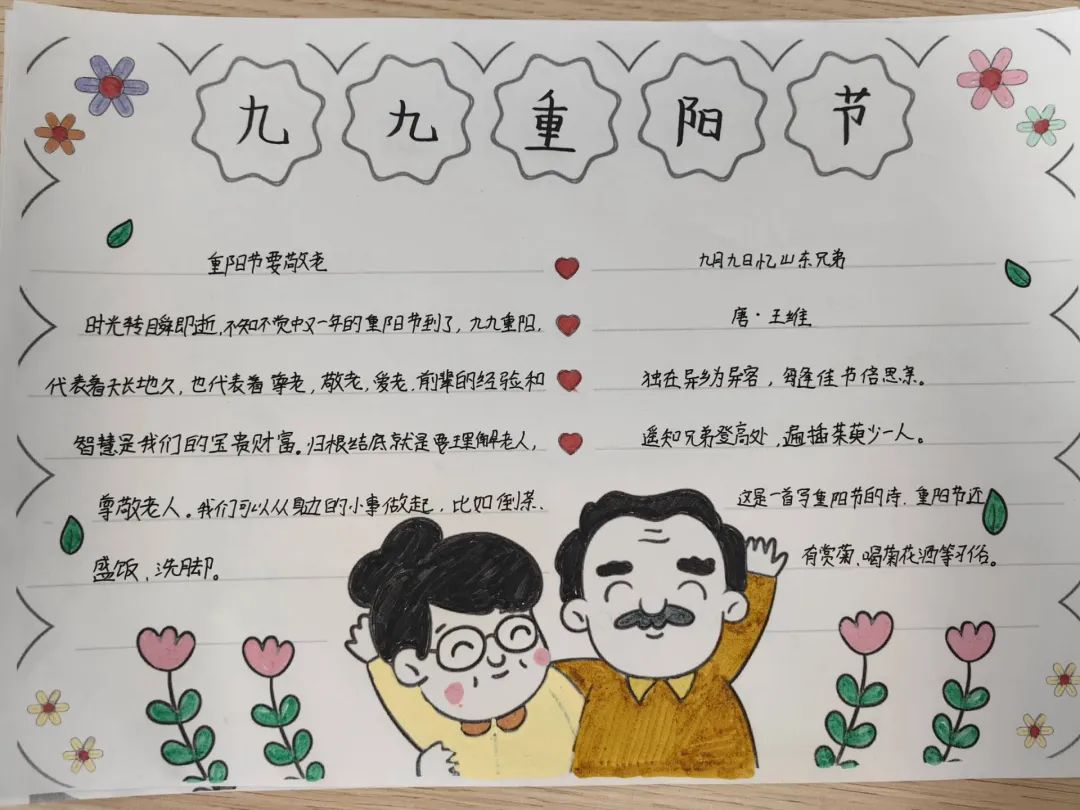 九九重阳节
重阳节要敬老
时光转瞬即逝,不知不觉中又一年的重阳节到了,九九重阳,
代表着天长地久,也代表着尊老,敬老,爱老,前辈的经验和
智慧是我们的宝贵财富。归根结底就是要理解老人,
尊敬老人。我们可以从身边的小事做起,比如倒茶、
盛饭、洗脚。
九月九日忆山东兄弟
唐·王维
独在异乡为异客,每逢佳节倍思亲。
遥知兄弟登高处,遍插茱萸少一人。
这是一首写重阳节的诗,重阳节还
有赏菊、喝菊花酒等习俗。